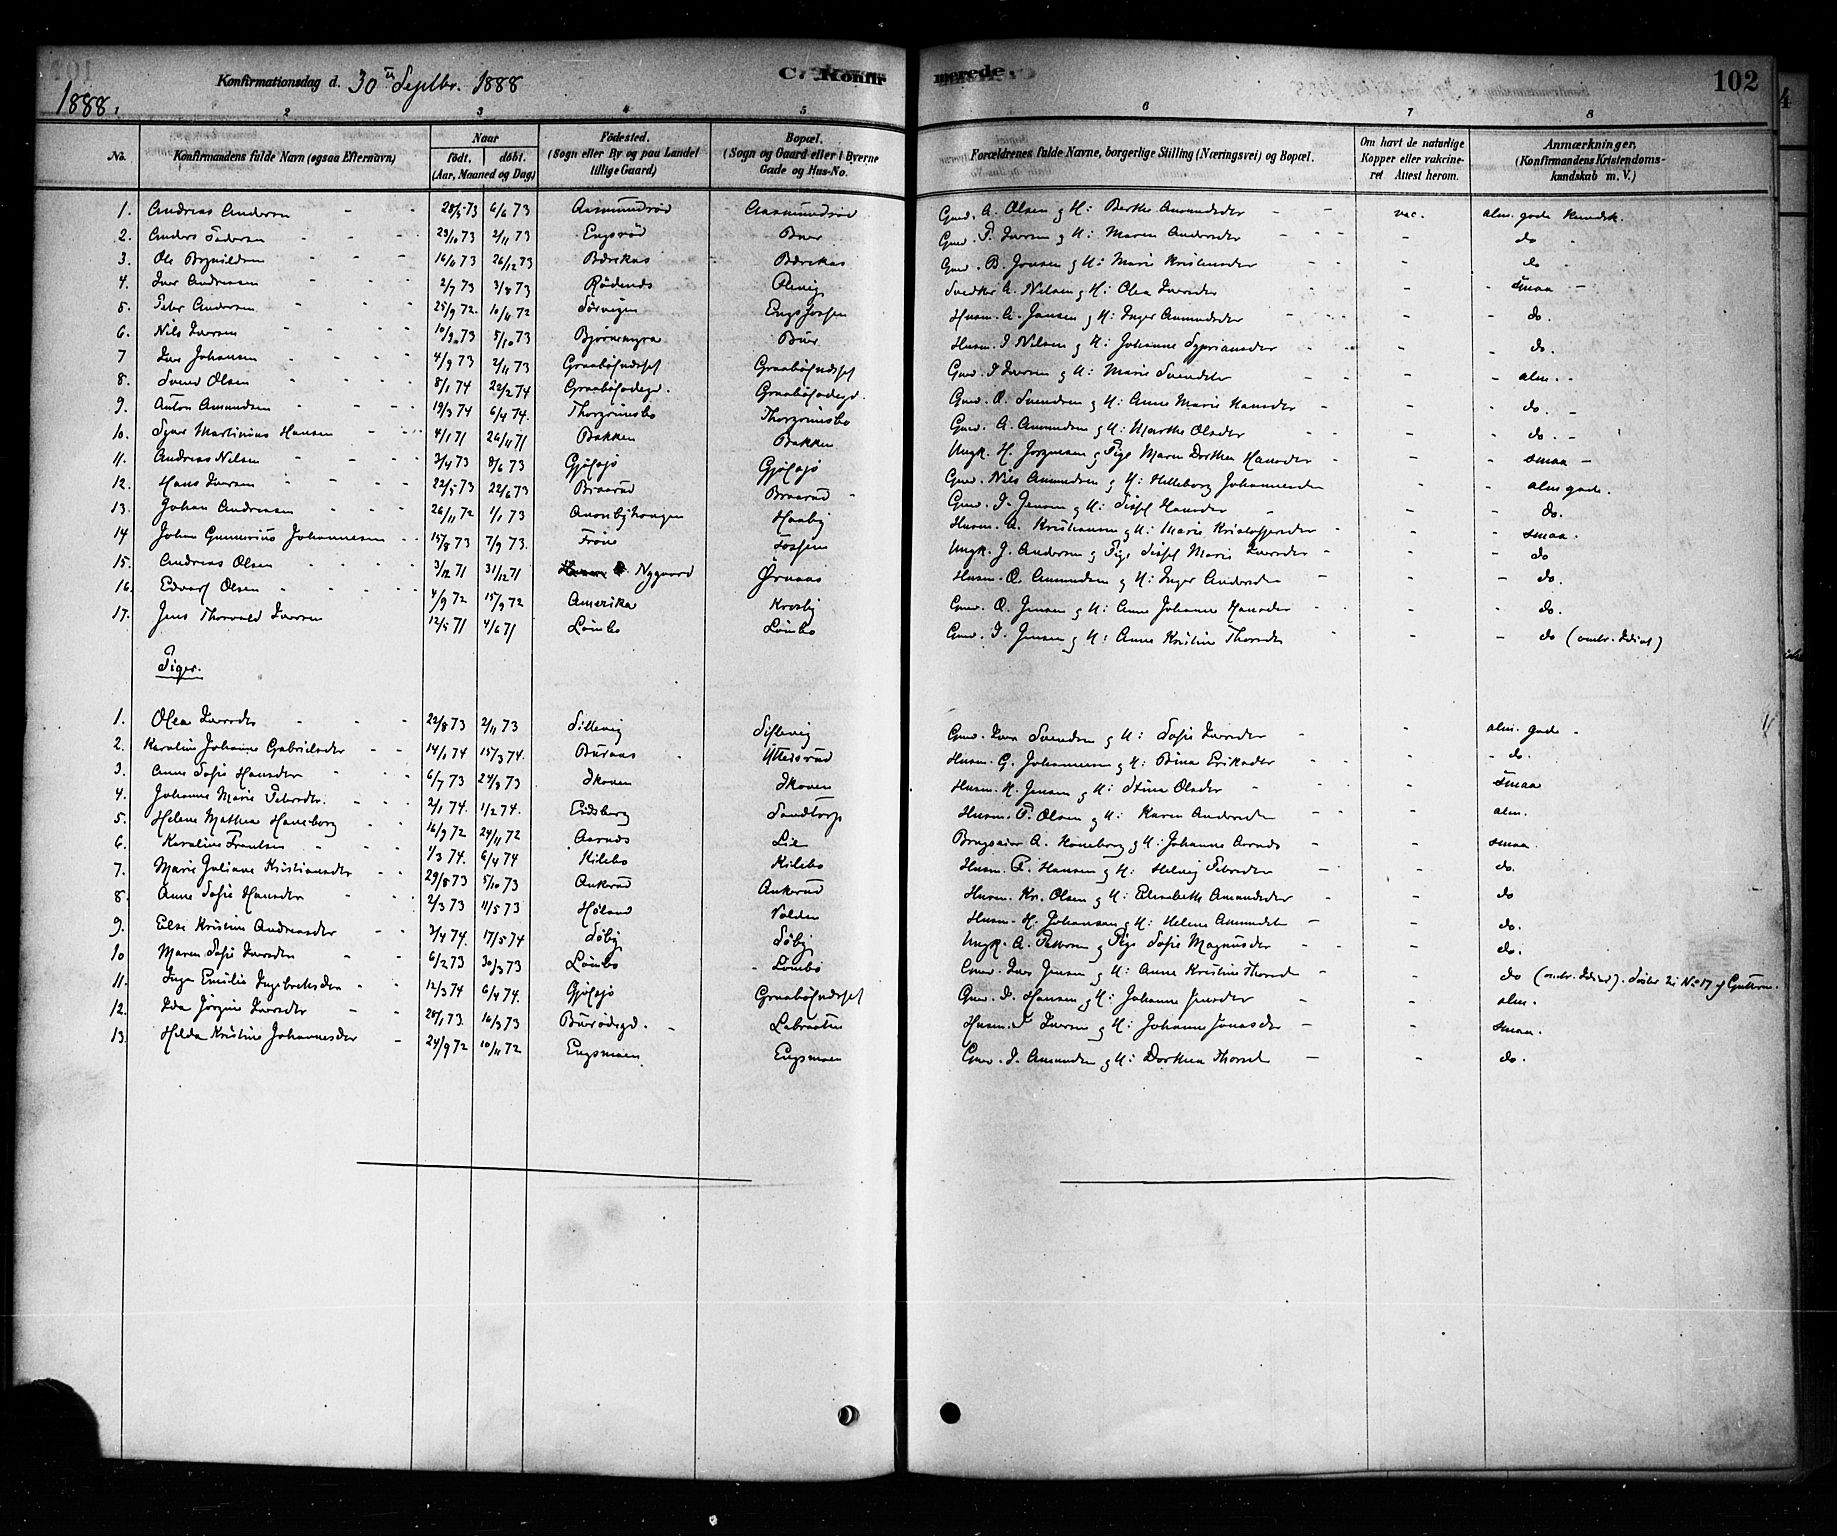 102
C. Konfirmerede
Konfirmationsdag d. 30 Septbr. 1888
1888.
2 3 4 5 6 7 8
No. Konfirmandens fulde Navn (ogsaa Efternavn) Naar født. døbt. (Aar, Maaned og Dag) Fødested. (Sogn eller By og paa Landet tillige Gaard) Bopæl. (Sogn og Gaard eller i Byerne Gade og Hus-No. Forældrenes fulde Navne, borgerlige Stilling (Næringsvei) og Bopæl. Om havt de naturlige Kopper eller vakcineret Attest herom. Anmærkninger, (Konfirmandens Kristendomskundskab m. V.)
1. Andreas Andersen 28/5 73 6/6 73 Aasmundrød Aasmundrød Gmd. A. Olsen g H: Berthe Amundsdr vac. alm. gode Kundsk.
2. Anders 29/10 73 2/11 73 Engsrød Buer Gmd. P. Iversen g H: Maren Andersdr - do
3. Ole Brynildsen 16/11 73 26/12 73 Bærekas Bærekas Gmd. B. Jonsen g H: Marie Kristensdr - do
4. Iver Andreasen 2/7 73 3/8 73 Rødenes A. Nilsen g H: Olea Iversdr - smaa
5. Peter Andersen 25/9 72 10/11 72 Sørvigen Husm. A. Jansen g H: Inger Amundsdr - do.
6. Nils Iversen 73 5/10 73 Bjørnemyra Buer Husm. I Nilsen g H: Johanne - do.
7 Iver Johansen 4/9 73 2/11 73 Gmd. I Iversen g H: Marie Svendsdr - alm.
8. Svend Olsen 8/1 74 22/2 74 Gmd. O. Svendsen g H: Anne Marie Hansdr - do.
9. Anton Amundsen 19/3 74 6/4 74. Thorgrimsbo Thorgrimsbo Gmd. A. Amundsen g H: Marthe Olsdr - do.
10. Martinius Hansen 4/1 71 26/11 71 Bakken Bakken Ungk. H. Jørgensen g Pige Maren Dorthea Hansdr - smaa
11. Andreas Nilsen 3/4 73 8/6 73 Gjølsjø Gjølsjø Gmd. Nils Amundsen g H: Helleborg Johannesdr - alm gode.
12. Hans Iversen 22/5 73 22/6 73 Braarud Braarud Gmd. I. Jensen g H: Hansdr - do.
13. Johan Andreasen 26/11 72 1/1 73 Haaby Husm. A. Kristiansen g H: Marie Kristoffersdr - smaa.
14 Johan Gunnerius Johannesen 15/8 73 7/9 73. Fossen Ungk. J. Andersen g Pige Marie Iversdr - do
15. Andreas Olsen 3/12 71 31/12 71 Nygaard Ørnaas Husm. O. Amundsen g H: Inger Andersdr - do.
16. Edvard Olsen 4/9 72 15/9 72 Amerika Krosby Gmd. O. Jensen g H: Anne Johanne Hansdr - do.
17. Jens Thorvald Iversen 12/5 71 4/6 71 Lømbo Lømbo Gmd. I. Jensen g H: Anne Kristine Thorsdr - do (omtr. Idiot)
Piger.
1. Olea Iversdr 22/8 73 2/11 73 Sillevig Sillevig Gmd. Iver Svendsen g H: Sofie Iversdr - alm. gode
2. Karoline Johanne Gabrielsdr 14/1 74 15/3 74. Buraas Utteisrud Husm. G. Johannesen g H: Eriksdtr - do.
3. Anne Sofie Hansdr 6/7 73 24/8 73 Skoven Skoven Husm. H. Jensen g H: Stina Olsdr - smaa
4. Johanne Marie Petersdr. 2/1 74. 1/2 74. Eidsberg Sandtorp Husm. P. Olsen g H: Karen Andersdr - alm.
5. Helene Mathea Haneborg 16/9 72 24/11 72 Aarnes Lie A. Haneborg g H: Johanne Aarnes - smaa.
6. Karoline Frantsen 1/3 74. 6/4 74 Kilebo Kilebo Husm. F. Hansen g H: Helvig Petersdr - do.
7. Marie Juliane Kristiansdr 29/8 73 5/10 73 Ankerud Ankerud Husm. Kr. Olsen g H: Elisabeth Amundsdr - do
8. Anne Sofie Hansdr 2/3 73 11/5 73 Høland Volden Husm. H. Johansen g H: Helene Amundsdt - do.
9. Else Kristine Andreasdr 3/4 74. 17/5 74 Søby Søby Ungk. A. Pettersen g Pige Sofie Magnusdr - do.
10 Maren Sofie Iversdr 6/2 73 30/3 73 Lømbo Lømbo Gmd. Iver Jensen g H: Anne Kristine Thorsd - do (omtr. Idiot). Søster til No 17 af Gutterne.
11. Inga Emilie Ingebretsdr 12/3 74 6/4 74. Gjølsjø Gmd. I. Hansen g H: Johanne Jensdr - alm.
12. Ida Jørgine Iversdr 20/1 73. 16/3 73 Labraaten Husm. I Iversen g H: Johanne Jonasdr - smaa.
13. Helda Kristine Johannesdr 24/9 72 10/11 72 Engsmoen Engsmoen Gmd. J. Amundsen g H: Dorthea Thorsd - do.